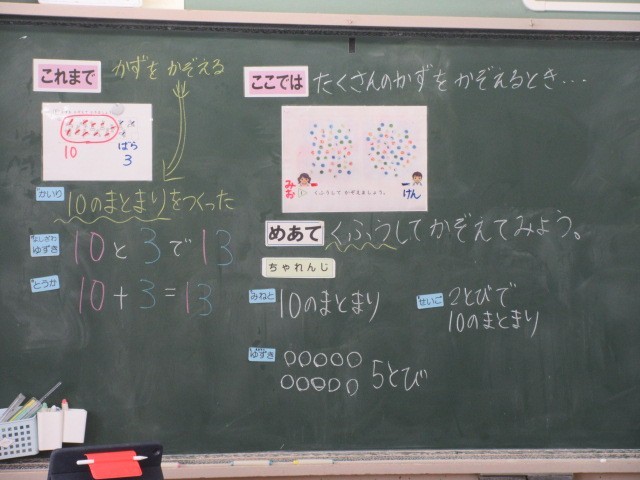 これまで
かずを かぞえる
10
ばら
3
かいり
10のまとまりをつくった
よしざわ
ゆずき
10と3で13
とうか
10+3=13
ここでは
たくさんのかずを かぞえるとき・・・
みお
けん
くふうして かぞえましょう。
めあて
くふうしてかぞえてみよう。
ちゃれんじ
みねと
10のまとまり
せいご
2とびで
10のまとまり
ゆずき
5とび